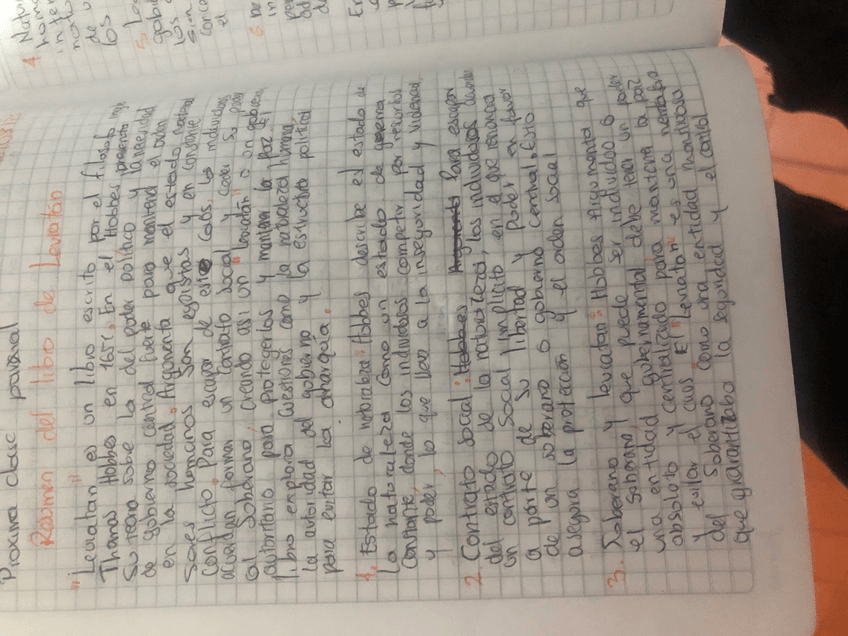 Proxima clase parcial
Resumen del libro de Leviatán
"Leviatan" es un libro escrito por el filosofo
Thomas Hobbes en 1651. En el Hobbes presenta
su teoria sobre la del poder político y la necesidad
de gobierno central fuerte para mantener el orden
en la sociedad. Argumenta que el estado natural
seres humanos son egoistas y en constante
conflicto. Para escapar de este caos, los individuos
acuerdan formar un contrato social y ceder su poder
al soberano, creando asi un "Leviatan" o un gobierno
autoritario para protegerlos y mantener la paz. El
libro explora cuestiones como la naturaleza humana,
la autoridad del gobierno y la estructura política
para evitar la anarquía.
1. Estado de naturaleza: Hobbes describe el estado de
la naturaleza como un estado de guerra
constante, donde los individuos compiten por recursos
y poder, lo que lleva a la inseguridad y violencia.
2. Contrato social: Hobbes Para escapar
del estado de la naturaleza, los individuos acuerdan
un contrato social implicito en el que renuncia
a parte de su libertad y poder en favor
de un soberano o gobierno central. Esto
asegura la protección y el orden social
3. Soberano y leviatan: Hobbes Argumenta que
el soberano, que puede ser individuo o
una entidad gubernamental debe tener un poder
absoluto y centralizado para mantener la paz
y evitar el caos. El "Leviatan" es una metafora
del Soberano como una entidad monstruosa
que garantizaba la seguridad y el control
4. Natu
5. L
6.